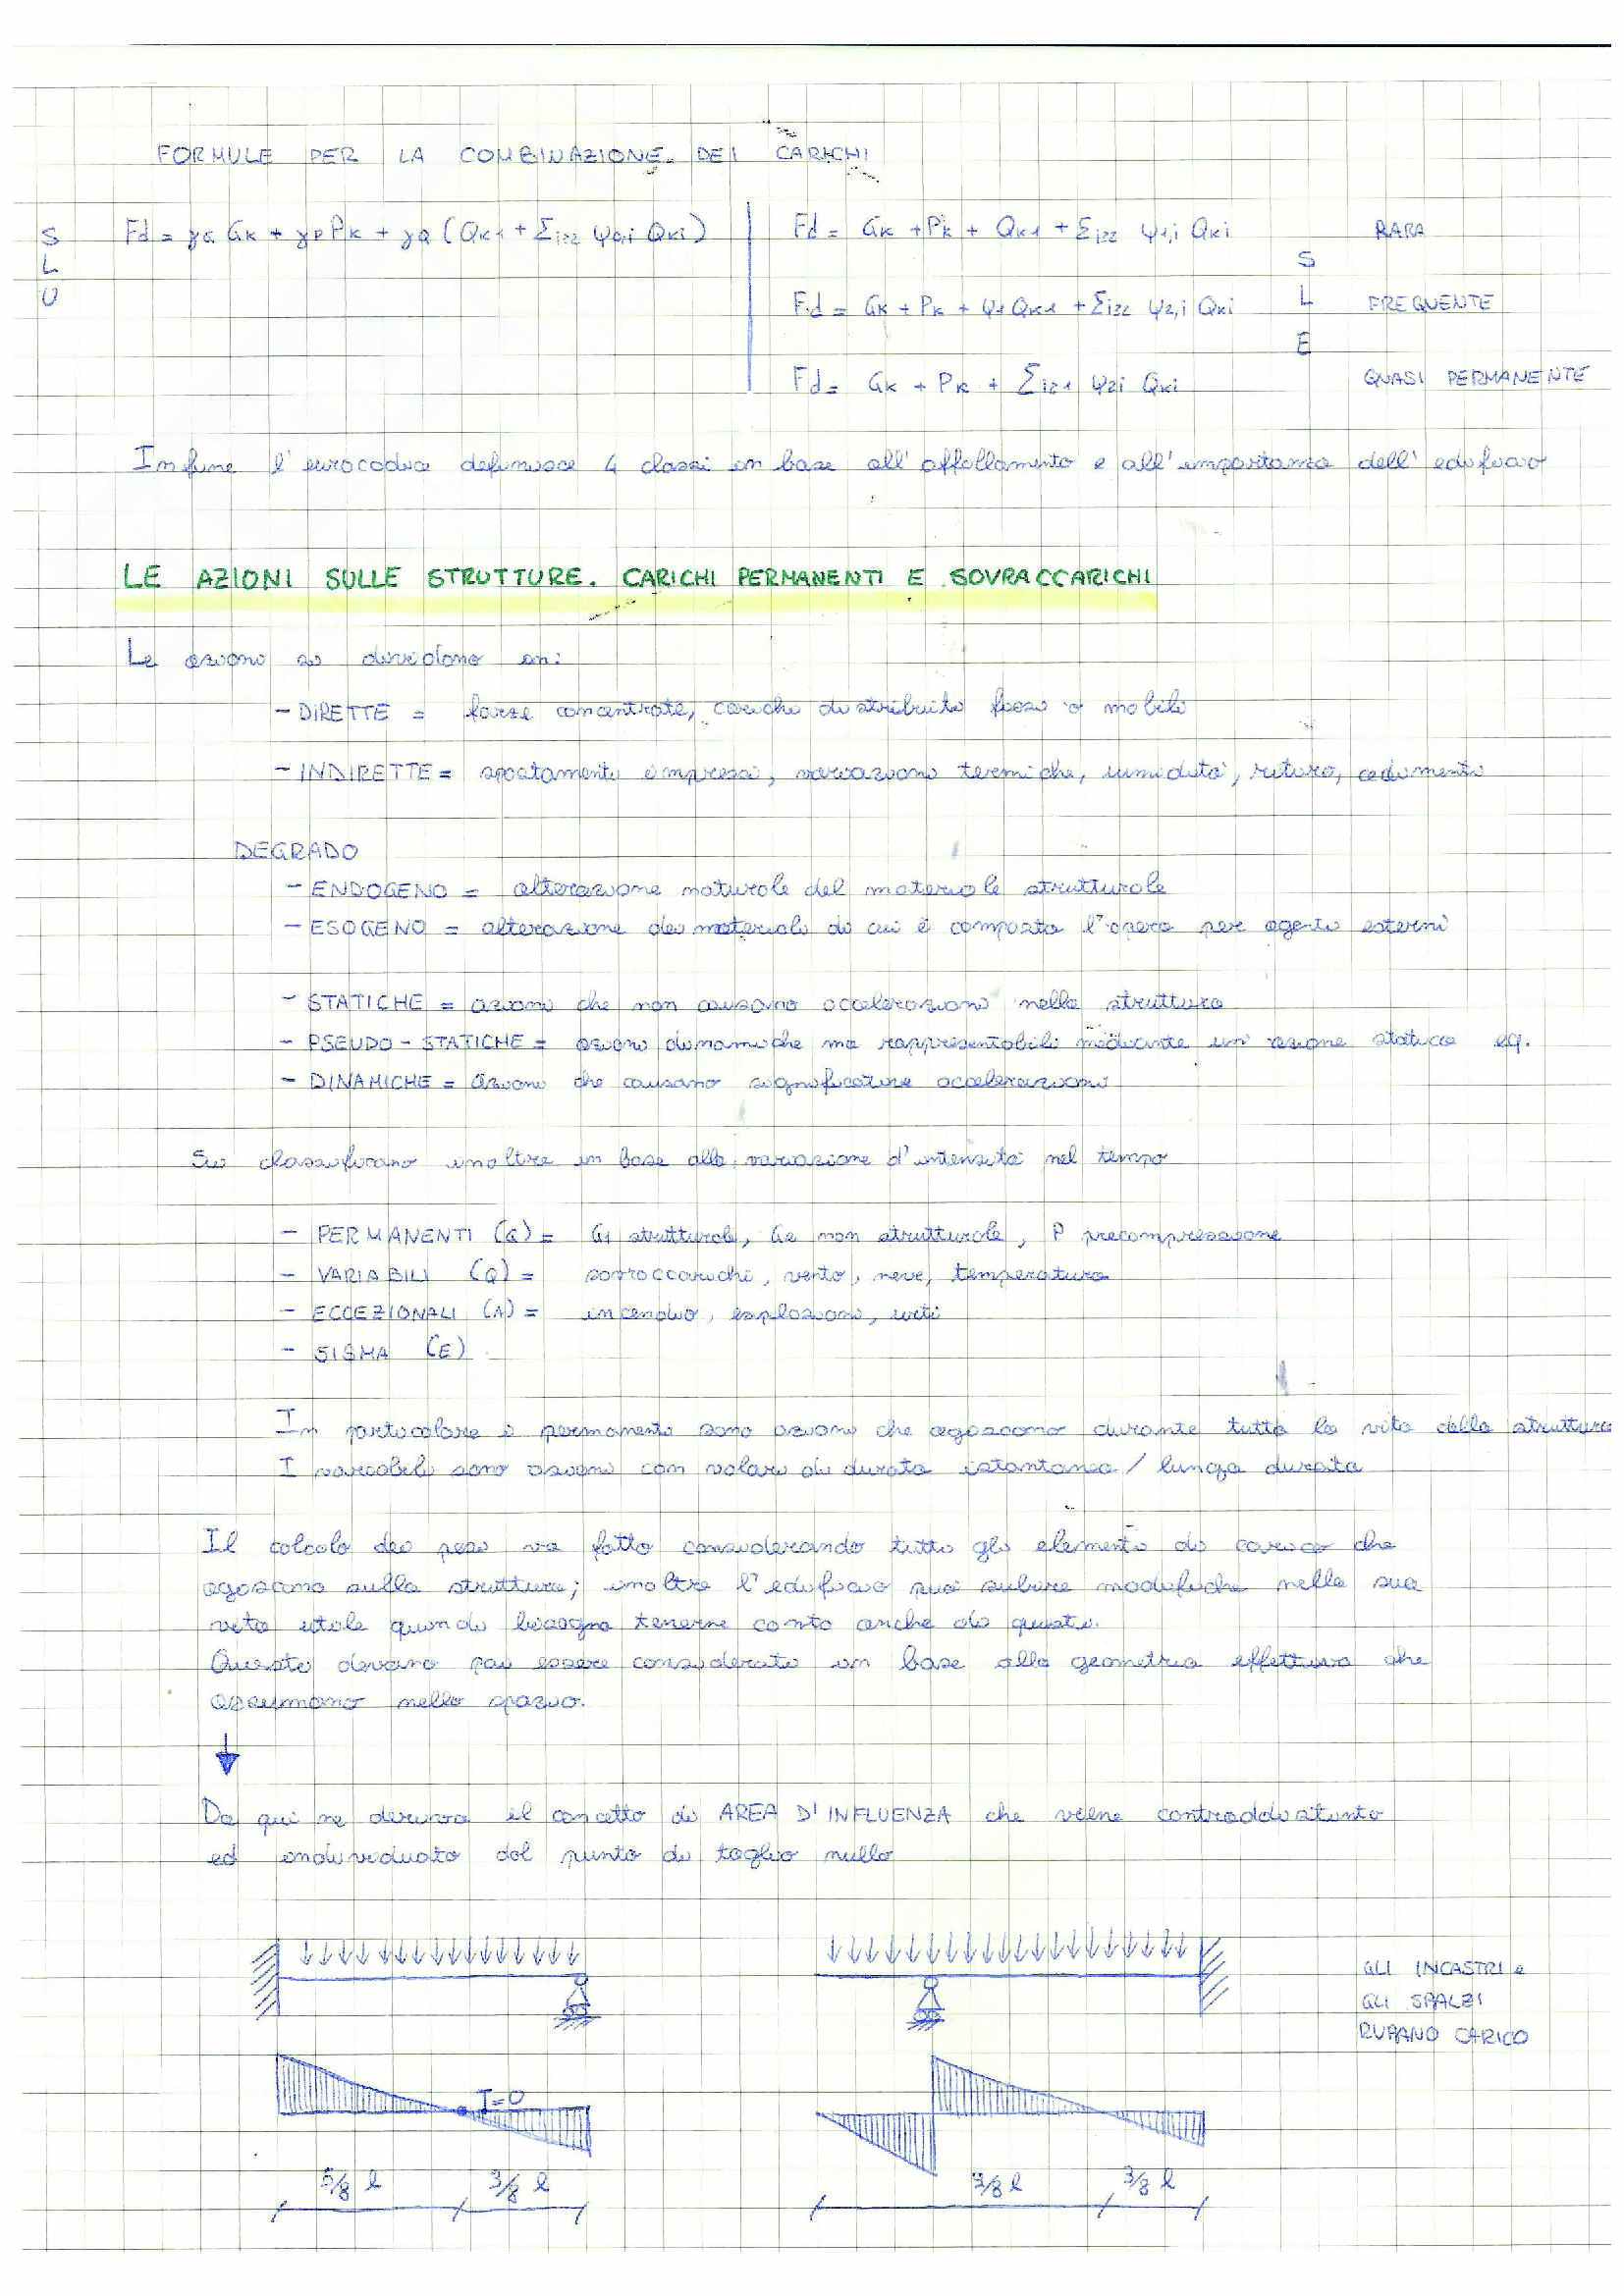 FORMULE PER LA COMBINAZIONE DEI CARICHI
S L U
Fd = γG GK + γP PK + γQ (QK1 + Σi≥2 ψ0,i QKi)
Fd = GK + PK + QK1 + Σi≥2 ψ1,i QKi RARA
Fd = GK + PK + ψ1 QK1 + Σi≥2 ψ2,i QKi FREQUENTE
Fd = GK + PK + Σi≥1 ψ2i QKi QUASI PERMANENTE
S L E
Infine l'eurocodice definisce 4 classi in base all'affollamento e all'importanza dell'edificio
LE AZIONI SULLE STRUTTURE. CARICHI PERMANENTI E SOVRACCARICHI
Le azioni si dividono in:
- DIRETTE = forze concentrate, carichi distribuiti fissi o mobili
- INDIRETTE = spostamenti impressi, variazioni termiche, umidità, ritiro, cedimenti
DEGRADO
- ENDOGENO = alterazione naturale del materiale strutturale
- ESOGENO = alterazione dei materiali di cui è composta l'opera per agenti esterni
- STATICHE = azioni che non causano accelerazioni nella struttura
- PSEUDO-STATICHE = azioni dinamiche ma rappresentabili mediante un'azione statica eq.
- DINAMICHE = azioni che causano significative accelerazioni
Si classificano inoltre in base alla variazione d'intensità nel tempo
- PERMANENTI (G) = G1 strutturale, G2 non strutturale, P precompressione
- VARIABILI (Q) = sovraccarichi, vento, neve, temperatura
- ECCEZIONALI (A) = incendio, esplosioni, urti
- SISMA (E)
In particolare i permanenti sono azioni che agiscono durante tutta la vita della struttura
I variabili sono azioni con valori di durata istantanea / lunga durata
Il calcolo dei pesi va fatto considerando tutti gli elementi di carico che
agiscono sulla struttura; inoltre l'edificio può subire modifiche nella sua
vita utile quindi bisogna tenerne conto anche di questi.
Questi devono poi essere considerati in base alla geometria effettiva che
assumono nello spazio.
Da qui ne deriva il concetto di AREA D'INFLUENZA che viene contraddistinto
ed individuato dal punto di taglio nullo
GLI INCASTRI e
GLI SBALZI
RUBANO CARICO
T=0
5/8 l 3/8 l
3/8 l